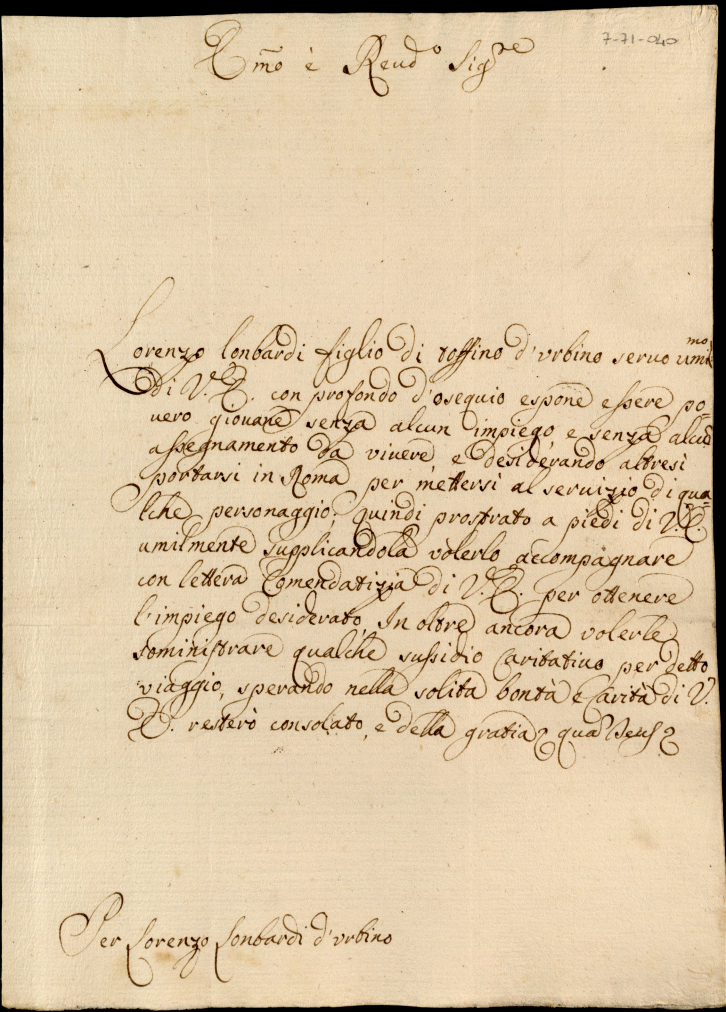 7-71-040
Emo è Reud.o Sig.re
Lorenzo lonbardi figlio di toffino d'vrbino seruo umil.mo
di V. E. con profondo d'osequio espone essere po-
uero giouane senza alcun impiego, e senza alcun
assegnamento da viuere e desiderando altresi
portarsi in Roma per mettersi al seruizio di qua-
lche personaggio; quindi prostrato a piedi di V. E.
umilmente supplicandola volerlo accompagnare
con lettera Comendatizia di V. E. per ottenere
l'impiego desiderato, In oltre ancora volerle
somministrare qualche sussidio caritatiuo per detto
viaggio, sperando nella solita bontà e Carità di V.
E. resterò consolato, e della gratia quam Deus
Per Lorenzo Lonbardi d'vrbino